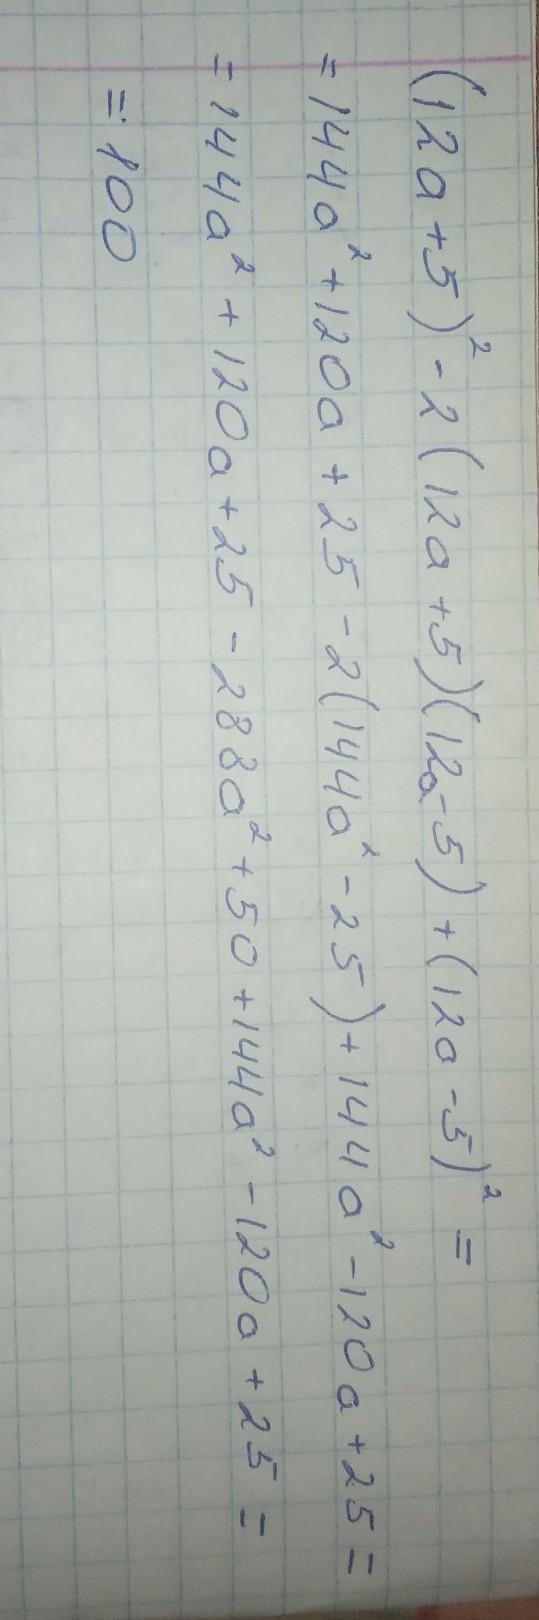 (12a+5)² - 2(12a+5)(12a-5)+(12a-5)² =
= 144a² + 120a + 25 - 2(144a² - 25) + 144a² - 120a + 25 =
= 144a² + 120a + 25 - 288a² + 50 + 144a² - 120a + 25 =
= 100